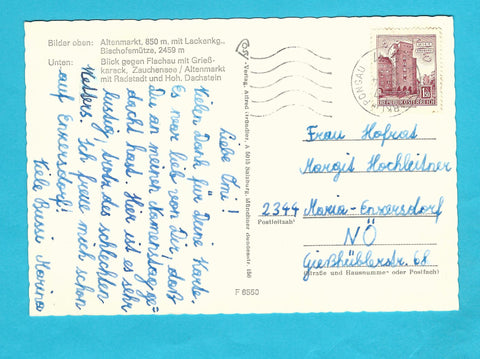 Bilder oben: Altenmarkt, 850 m. mit Lackenkg.,
Bischofsmütze, 2459 m
Unten: Blick gegen Flachau mit Grieß-
kareck, Zauchensee / Altenmarkt
mit Radstadt und Hoh. Dachstein
Liebe Omi!
Vielen Dank für Deine Karte.
Es war lieb von Dir, daß
Du an meinen Namenstag ge-
dacht hast. Hier ist es sehr
lustig, trotz des schlechten
Wetters. Ich freue mich schon
auf Enzersdorf!
Viele Bussi Marina
Verlag, Alfred Gründler, A 5013 Salzburg, Münchner Bundesstr. 150
F 6560
PONGAU
REPUBLIK ÖSTERREICH
Frau Hofrat
Margit Hochleitner
2344 Maria-Enzersdorf
Postleitzahl
NÖ
Gießhüblerstr. 68
(Straße und Hausnummer oder Postfach)